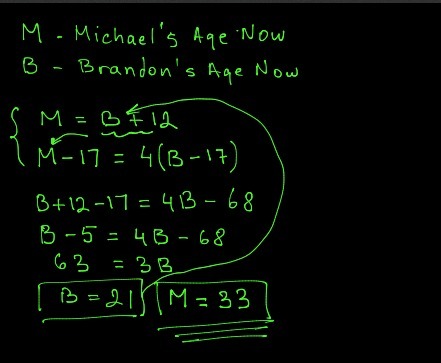 M - Michael's Age Now
B - Brandon's Age Now
M = B + 12
M - 17 = 4(B - 17)
B + 12 - 17 = 4B - 68
B - 5 = 4B - 68
63 = 3B
B = 21 M = 33